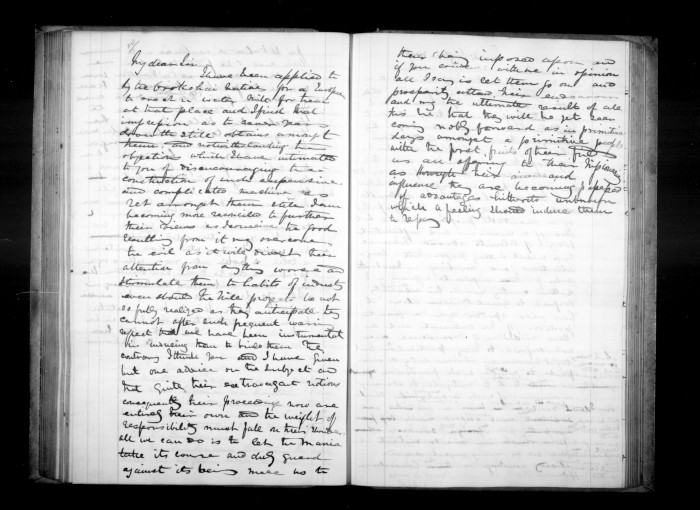 My dear Sir
I have been applied to
by the Native for a European
to erect a water Mill for them
at that place and I find that
impression as to
down the still obtains amongst
them and notwithstanding the
objection which I have intimated
to you of discouraging the
construction of such expensive
and complicated machinery as
yet amongst them still I am
becoming more reconciled to further
their views as I conceive the good
resulting from it may overcome
the evil as it will divert their
attention from anything worse and
stimulate them to habits of industry
even should the Mill project be not
so fully realized as they anticipate they
cannot after such frequent warning
expect that we have been instrumental
in inducing them to build them the
contrary I think you and I have given
but one advice on the subject and
that quite their extravagant notions
consequently their proceedings now are
entirely their own and the weight of
responsibility must fall on their shoulders
all we can do is to let the Mania
take its course and duly guard
against its being made us to
their being imposed upon and
if you coincide with me in opinion
all I say is let them go on and
prosperity attend their endeavours
and may the ultimate result of all
this be that they will be yet seen
coming nobly forward as in primitive
days amongst a primitive people
with the first fruits of their
as an offering to their Missionary
as through their means and
influence they are becoming possessed
of advantages hitherto unknown
which a feeling should induce them
to repay